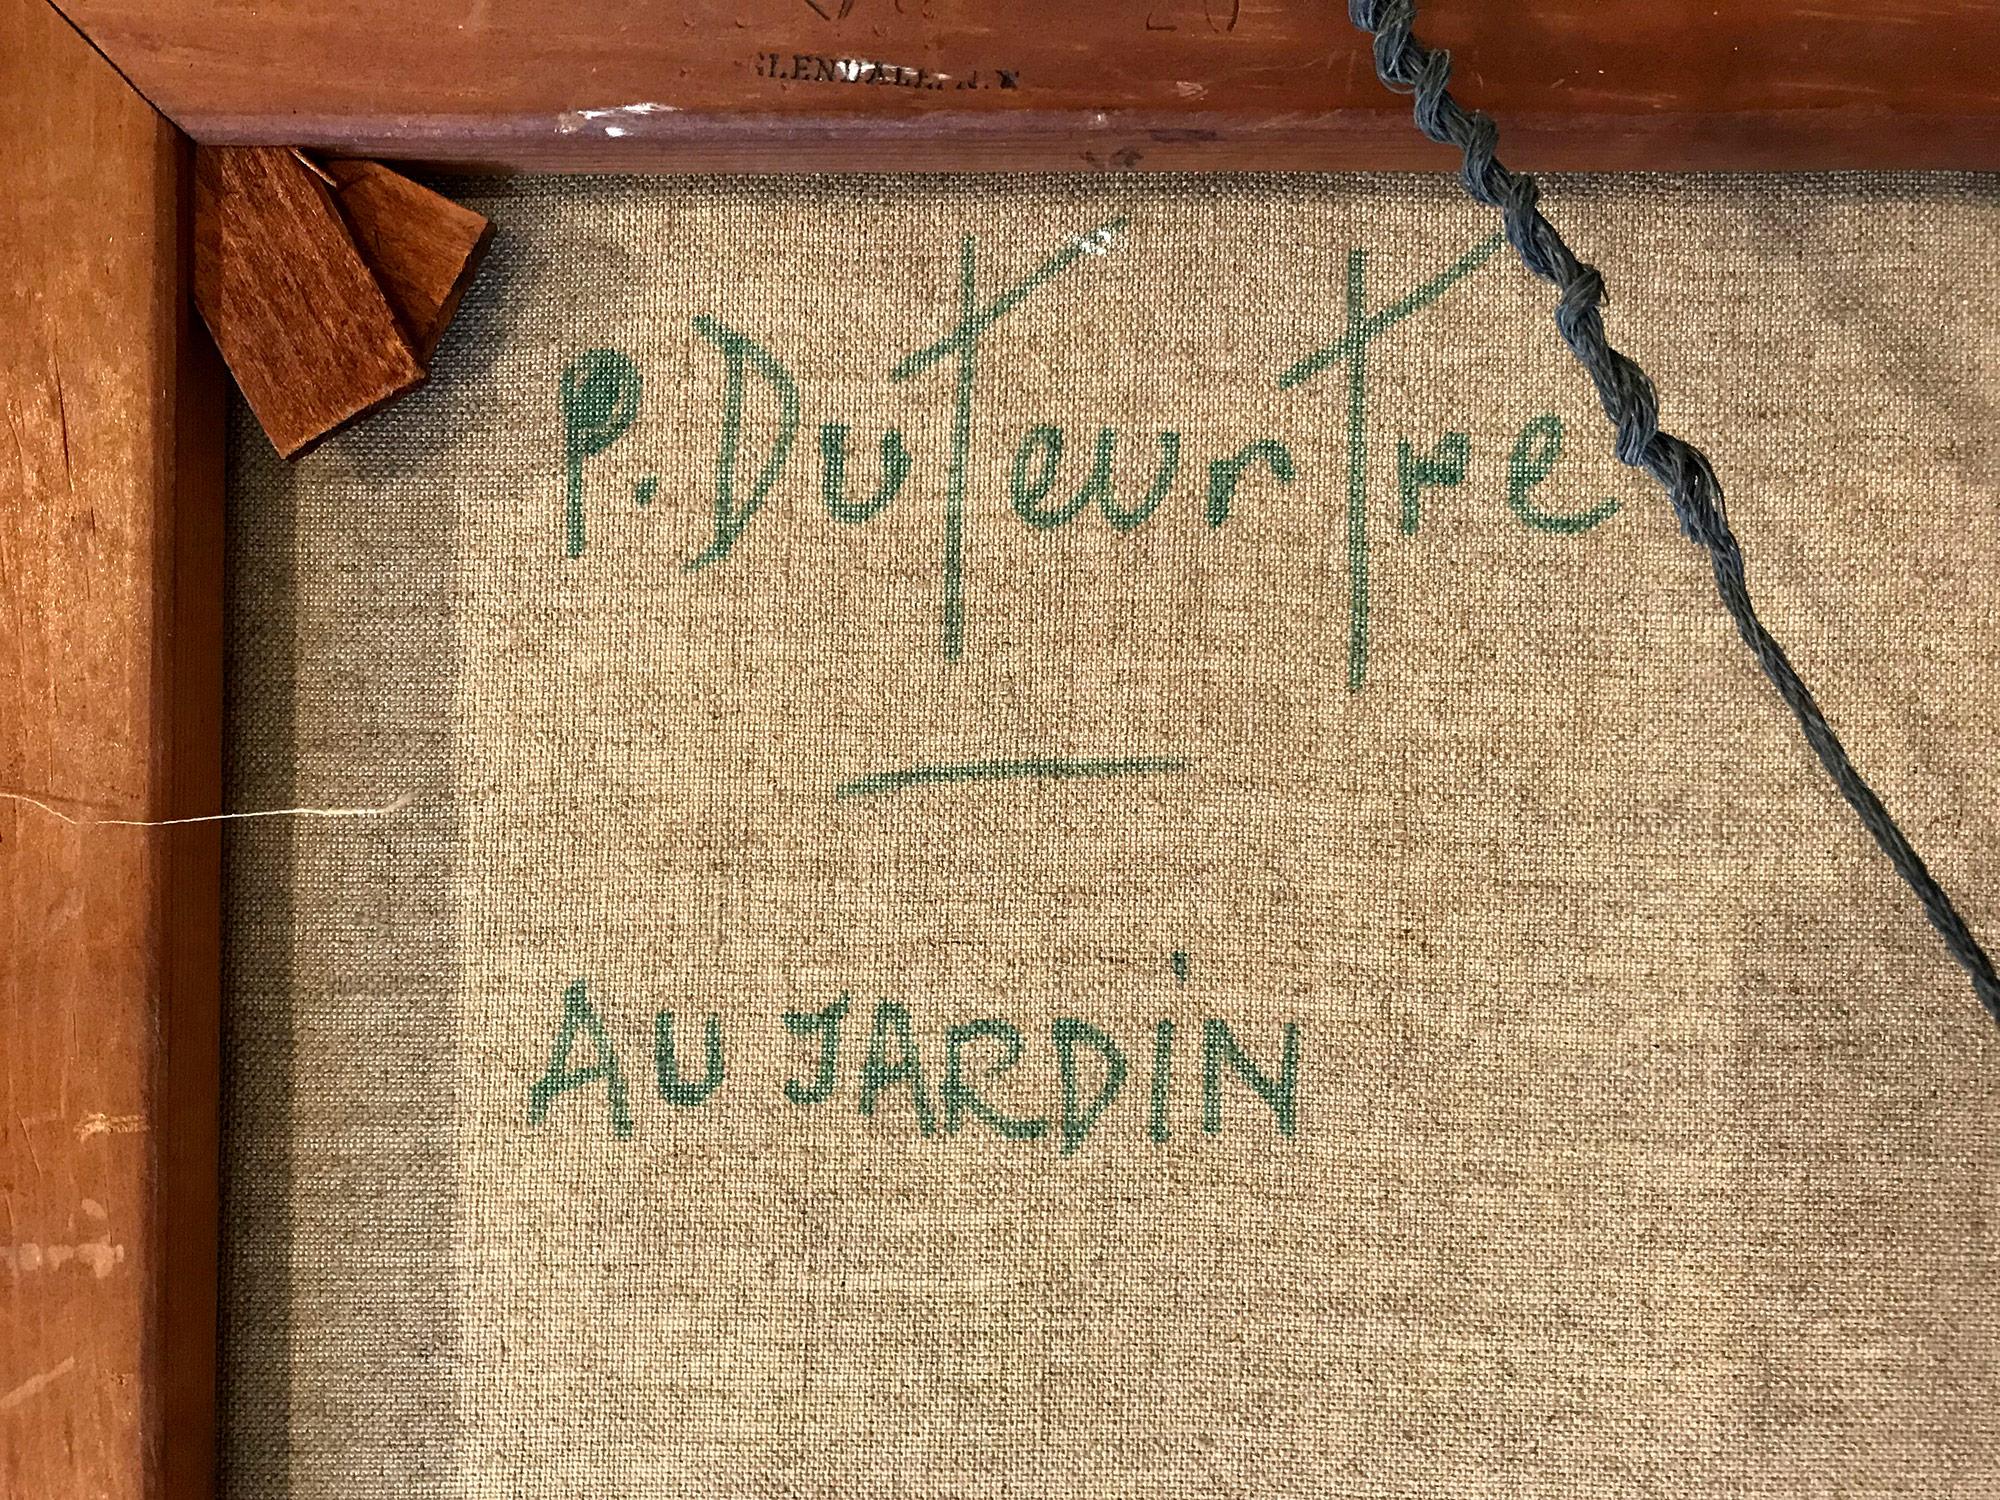 GLENDALE, N.Y
P. Duteurtre
AU JARDIN